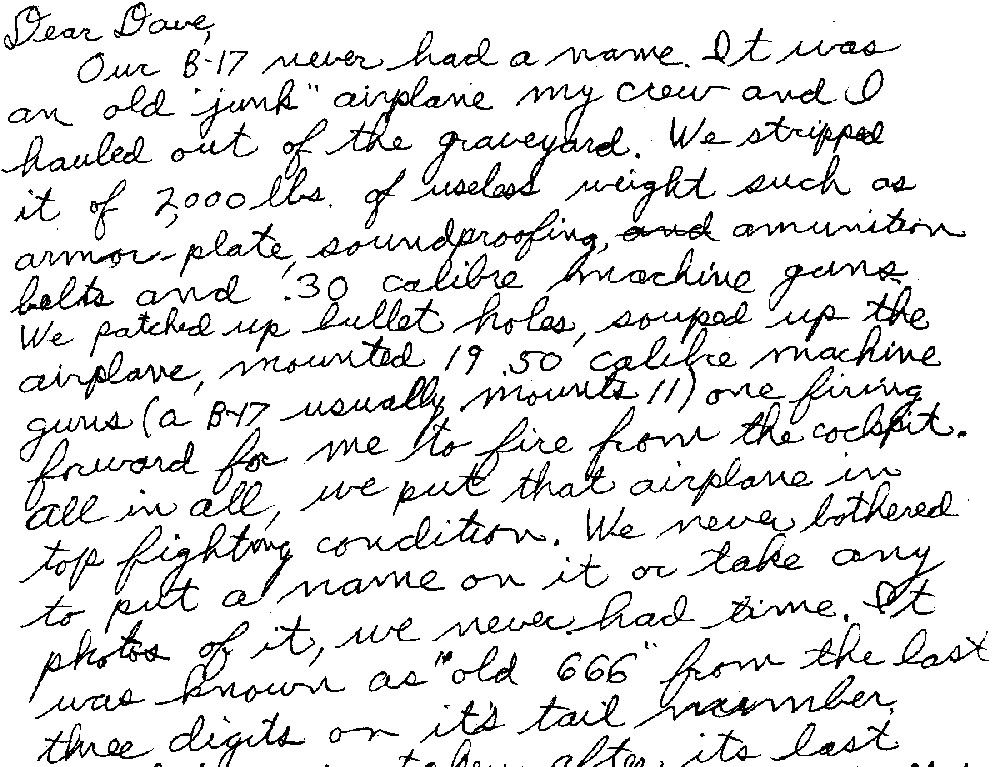 Dear Dave,
Our B-17 never had a name. It was
an old "junk" airplane my crew and I
hauled out of the graveyard. We stripped
it of 2,000 lbs. of useless weight such as
armor-plate, soundproofing, and amunition
belts and .30 calibre machine guns.
We patched up bullet holes, souped up the
airplane, mounted 19 .50 calibre machine
guns (a B-17 usually mounts 11) one firing
forward for me to fire from the cockpit.
All in all, we put that airplane in
top fighting condition. We never bothered
to put a name on it or take any
photos of it, we never had time. It
was known as "old 666" from the last
three digits on it's tail number.
taken after its last